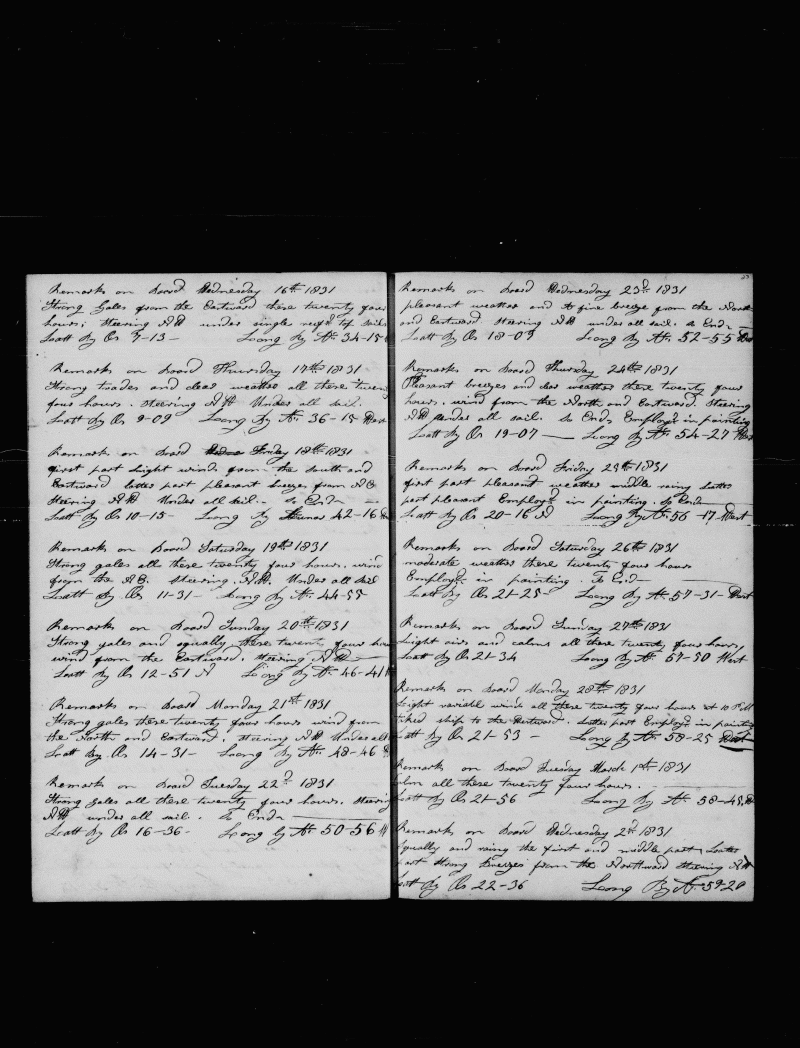 Remarks on Board Wednesday 16th 1831
Strong Gales from the Eastward these twenty four
hours. Steering NW under single reef'd top sails
Latt By Os 7-13- Long By Ar 34-15
Remarks on Board Thursday 17th 1831
Strong trades and clear weather all these twenty
four hours. steering NW Under all sail.
Latt By Os 9-09 Long By Ar 36-15 West
Remarks on Board Friday 18th 1831
first part Light winds from the South and
Eastward latter part pleasant breezes from NE
Steering NW Under all sail - So Ends
Latt By Os 10-15- Long By Lunar 42-16
Remarks on Board Saturday 19th 1831
Strong gales all these twenty four hours. wind
from the NE. steering. NW. Under all sail
Latt By Os 11-31- Long By Ar 44-55
Remarks on Board Sunday 20th 1831
Strong gales and squally these twenty four hours
wind from the Eastward. steering NW
Latt By Os 12-51 N Long By Ar 46-41
Remarks on Board Monday 21st 1831
Strong gales these twenty four hours wind from
the North and Eastward. steering NW Under all
Latt By Os 14-31- Long By Ar 48-46
Remarks on Board Tuesday 22d 1831
Strong gales all these twenty four hours. Steering
NW under all sail. So Ends
Latt By Os 16-36- Long By Ar 50-56 W
Remarks on Board Wednesday 23d 1831
pleasant weather and a fine breeze from the North
and Eastward Steering NW under all sail. So Ends
Latt By Os 18-09 Long By Ar 52-55
Remarks on Board Thursday 24th 1831
Pleasant breezes and clear weather these twenty four
hours. wind from the North and Eastward Steering
NW Under all sail. So Ends Employ'd in painting
Latt By Os 19-07 Long By Ar 54-27 West
Remarks on Board Friday 25th 1831
first part pleasant weather middle rainy Latter
part pleasant Employ'd in painting. So Ends
Latt By Os 20-16 N Long By Ar 56-17 West
Remarks on Board Saturday 26th 1831
moderate weather these twenty four hours
Employ'd in painting. So Ends
Latt By Os 21-25- Long By Ar 57-31- West
Remarks on Board Sunday 27th 1831
Light airs and calms all these twenty four hours,
Latt By Os 21-34 Long By Ar 57-50 West
Remarks on Board Monday 28th 1831
Light variabl winds all these twenty four hours at 10 PM
tacked ship to the Eastward. Latter part Employ'd in painting
Latt By Os 21-53 - Long By Ar 58-25 West
Remarks on Board Tuesday March 1st 1831
Calm all these twenty four hours.
Latt By Os 21-56 Long By Ar 58-45
Remarks on Board Wednesday 2d 1831
Squally and rainy the first and middle part, Latter
part Strong breezes from the Northward Steering NW
Latt By Os 22-36 Long By Ar 59-20